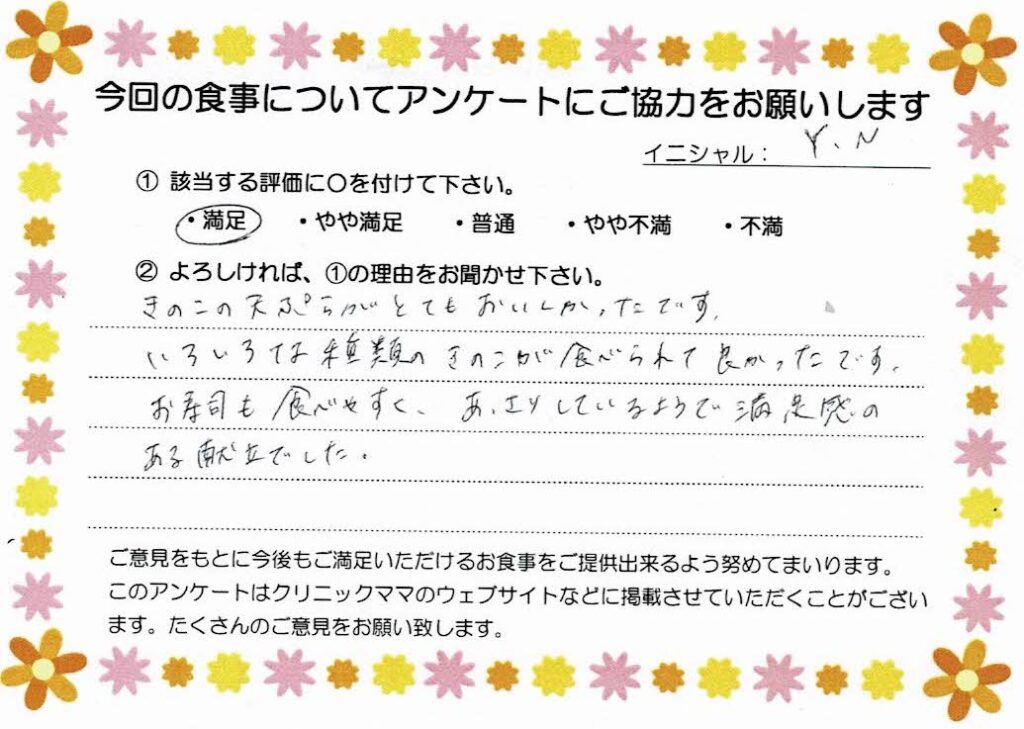 今回の食事についてアンケートにご協力をお願いします
イニシャル： Y.N
① 該当する評価に〇を付けて下さい。
・満足 ・やや満足 ・普通 ・やや不満 ・不満
② よろしければ、①の理由をお聞かせ下さい。
きのこの天ぷらがとてもおいしかったです。
いろいろな種類のきのこが食べられて良かったです。
お寿司も食べやすく、あっさりしているようで満足感の
ある献立でした。
ご意見をもとに今後もご満足いただけるお食事をご提供出来るよう努めてまいります。
このアンケートはクリニックママのウェブサイトなどに掲載させていただくことがござい
ます。たくさんのご意見をお願い致します。